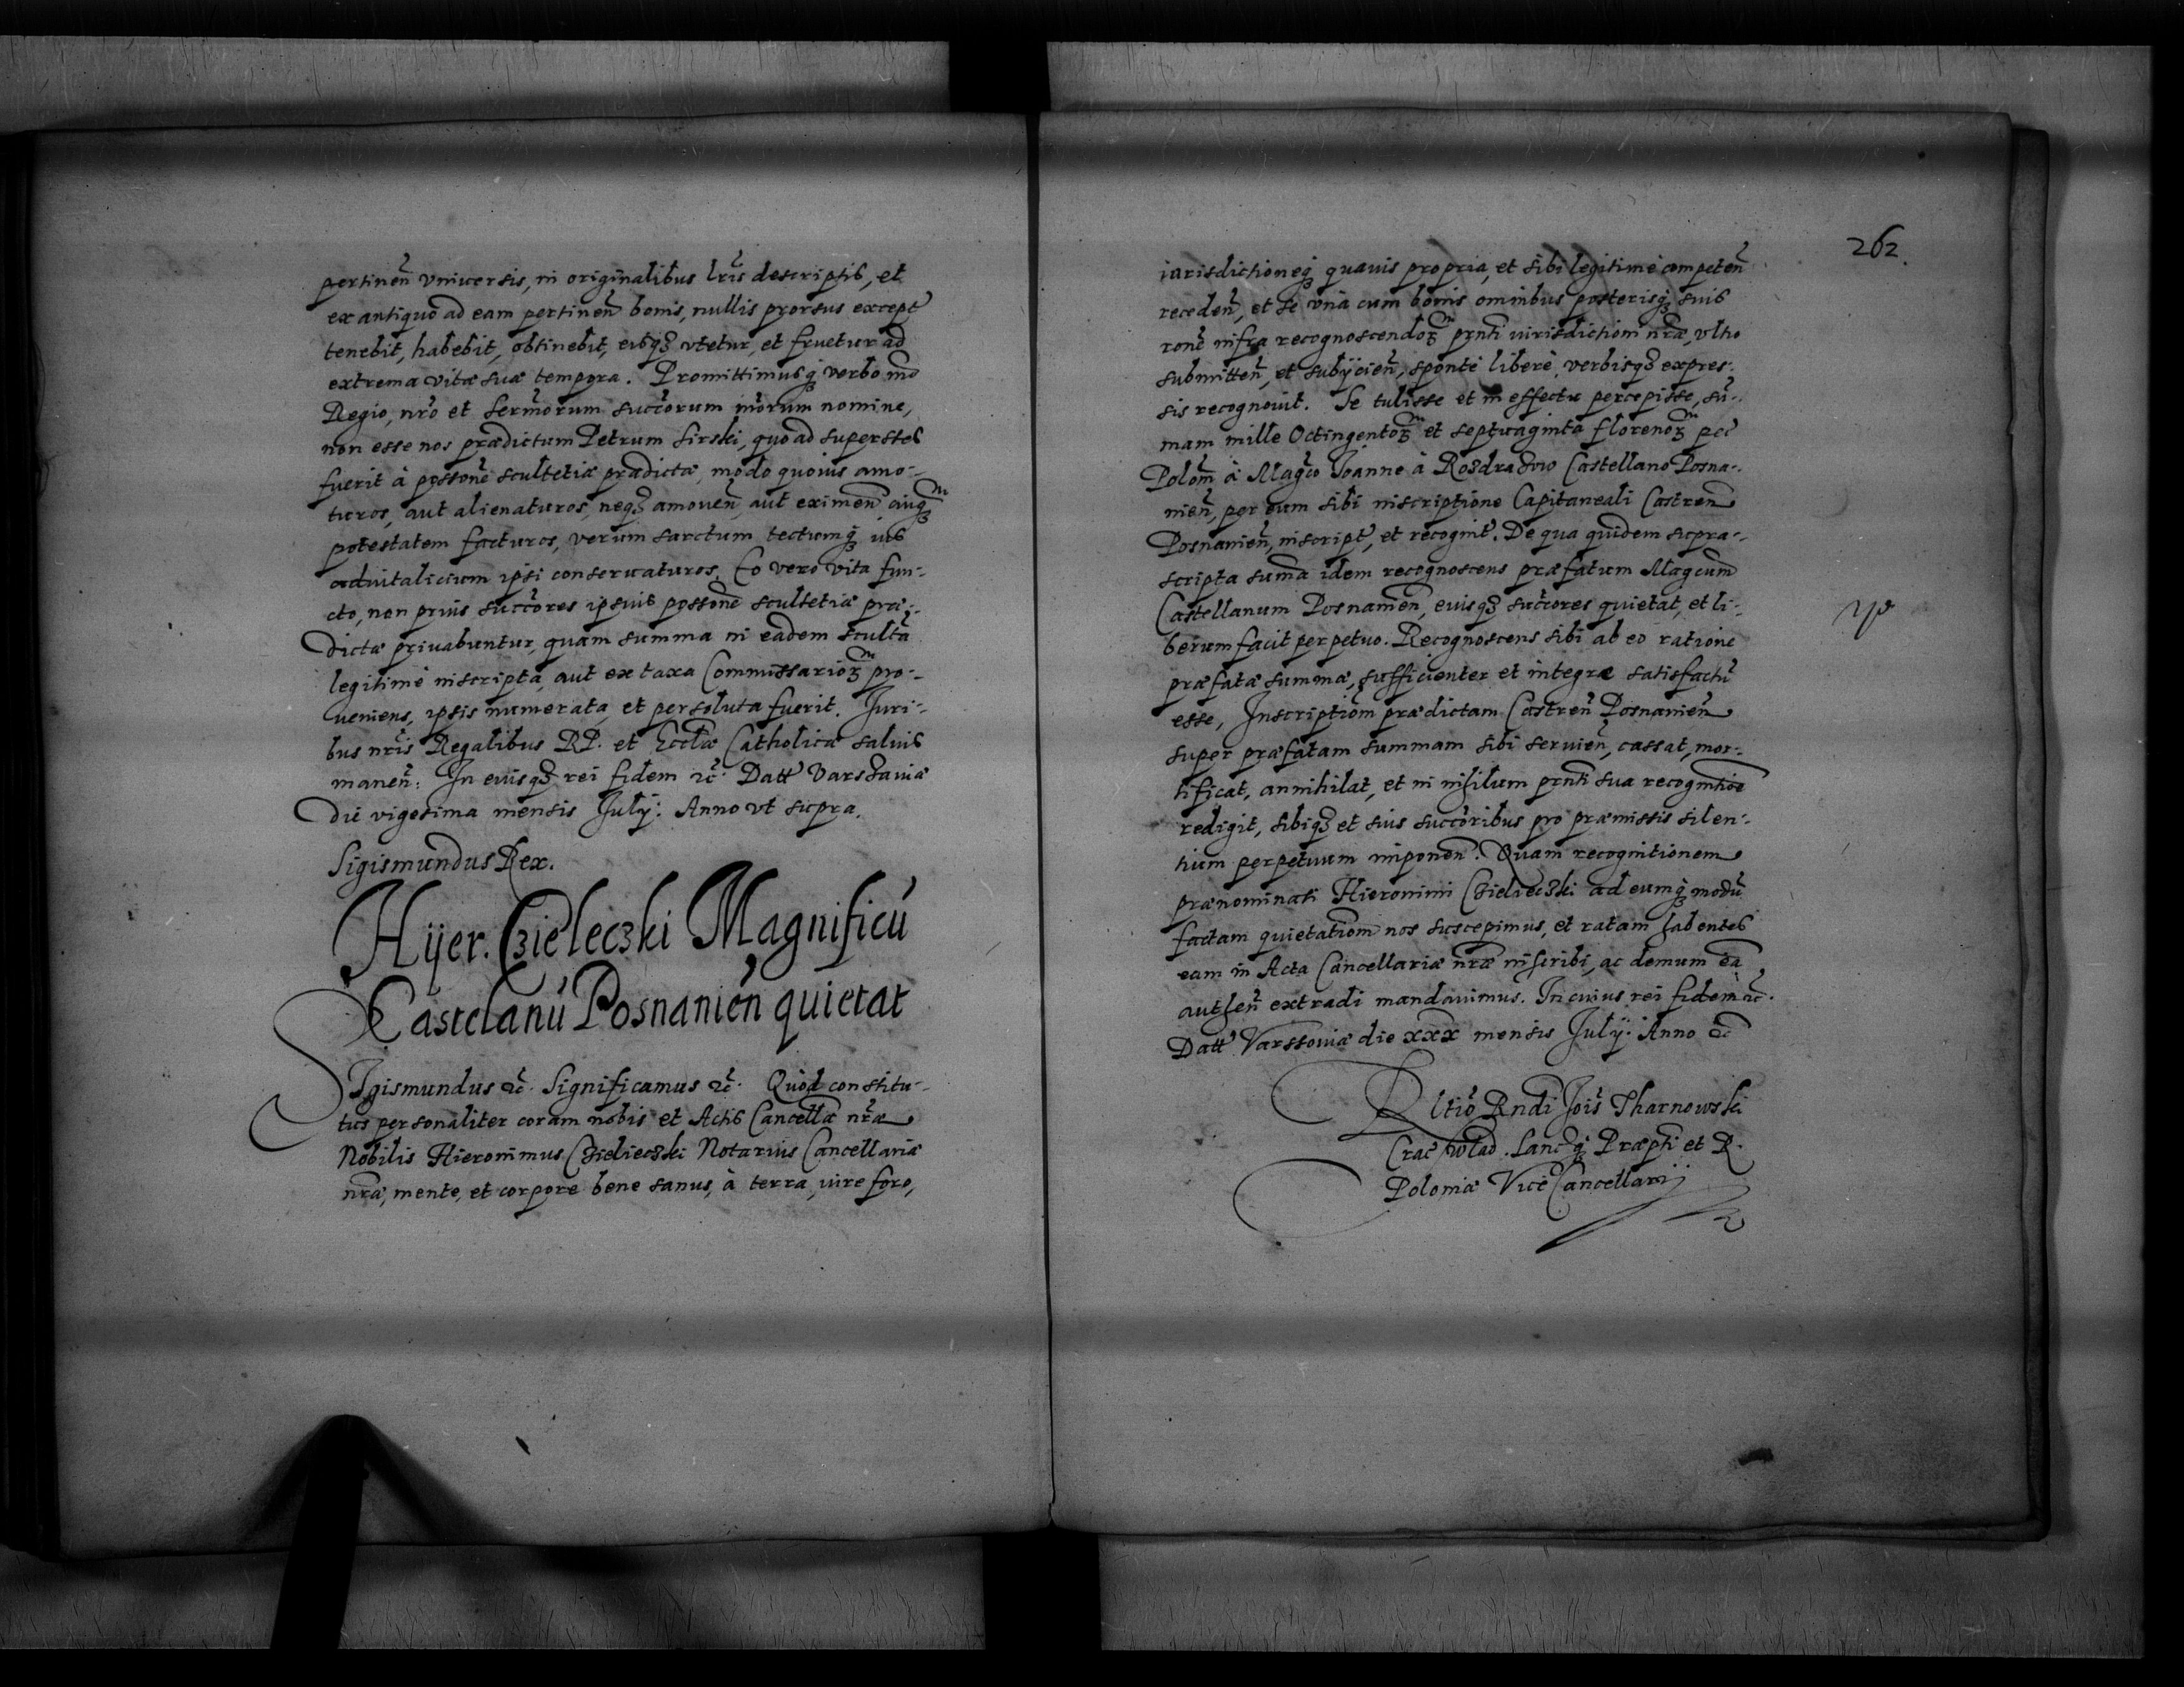 pertineñ vniuersis, in originalibus lr̃is descriptis, et
ex antiquo ad eam pertineñ bonis, nullis prorsus except
tenebit, habebit, obtinebit, eisqȝ vtetur, et fruetur ad
extrema vitæ suæ tempora. Promittimusqȝ verbo nr̃o
Regio, nr̃o et Serm̃orum succ̃orum nr̃orum nomine,
non esse nos prædictum Petrum Sirski, quoad superstes
fuerit à posson̄e scultetiæ prædictæ, modo quouis amo-
turos, aut alienaturos, neqȝ amoueñ, aut eximeñ cuiqȝ
potestatem facturos, verum sarctum tectumqȝ ius
aduitalicium ipsi conseruaturos. Eo vero vita fun-
cto, non prius succ̃ores ipsius posson̄e scultetiæ præ-
dictæ priuabuntur, quam summa in eadem scultã
legitimè inscripta, aut ex taxa Commissarioȝ pro-
ueniens, ipsis numerata, et persoluta fuerit. Juri-
bus nr̃is Regalibus RP. et Eccl̃iæ Catholicæ saluis
maneñ: In cuiusqȝ rei fidem ꝛc̃. Datt Varschauiæ
die vigesima mensis July: Anno vt supra.
Sigismundus Rex.
Hijer. Czieleczki Magnificũ
Castelanũ Posnanień quietat
SIgismundus ꝛc̃. Significamus ꝛc̃. Quod constitu-
tus personaliter coram nobis et Actis Cancellæ nr̃æ
Nobilis Hieronimus Czielieczki Notarius Cancellariæ
nr̃æ, mente, et corpore bene sanus, à terra, iure foro,
262.
iurisdictioneqȝ quauis propria, et sibi legitimè competeñ
recedeñ, et se vnà cum bonis ominibus posterisqȝ suis
ronẽ infra recognoscendoȝ pñti iurisdictioni nr̃æ, vltro
submitteñ, et subijcieñ, sponte liberè, verbisqȝ expres-
sis recognouit. Se tulisse et in effectu percepisse, sũ-
mam mille Octingentoȝ et septuaginta florenoȝ pec̃
Polom̃ à Magc̃o Joanne à Rozdrazow Castellano Posna-
nieñ, per eum sibi inscriptione Capitaneali Castreñ
Posnanieñ, inscript, et recognit. De qua quidem supra-
scripta suma idem recognoscens præfatum Magcum
Castellanum Posnanieñ, eiusqȝ succ̃ores quietat, et li-
berum facit perpetuo. Recognoscens sibi ab eo ratione
præfatæ summæ, sufficienter et integræ satisfactũ
esse, Inscriptiom̃ prædictam Castreñ Posnanieñ
super præfatam summam sibi seruieñ, cassat, mor-
tificat, annihilat, et in nihilum pñti sua recognitioẽ
redigit, sibiqȝ et suis succ̃oribus pro præmissis silen-
tium perpetuum imponeñ. Quam recognitionem
prænominati Hieronimi Czielieczki ad eumqȝ modũ
factam quietatiom̃ nos suscepimus, et ratam habentes
eam in Acta Cancellariæ nr̃æ inscribi, ac demum eã
autheñ extradi mandauimus. In cuius rei fidem ꝛc̃.
Datt Varssouiæ die xxx mensis July: Anno ꝛc̃
Rltiõ Rndi Jois̃ Tharnowski
Crac̃ wlad. Lancqȝ Præpti et R.
Poloniæ Vice Cancellarij